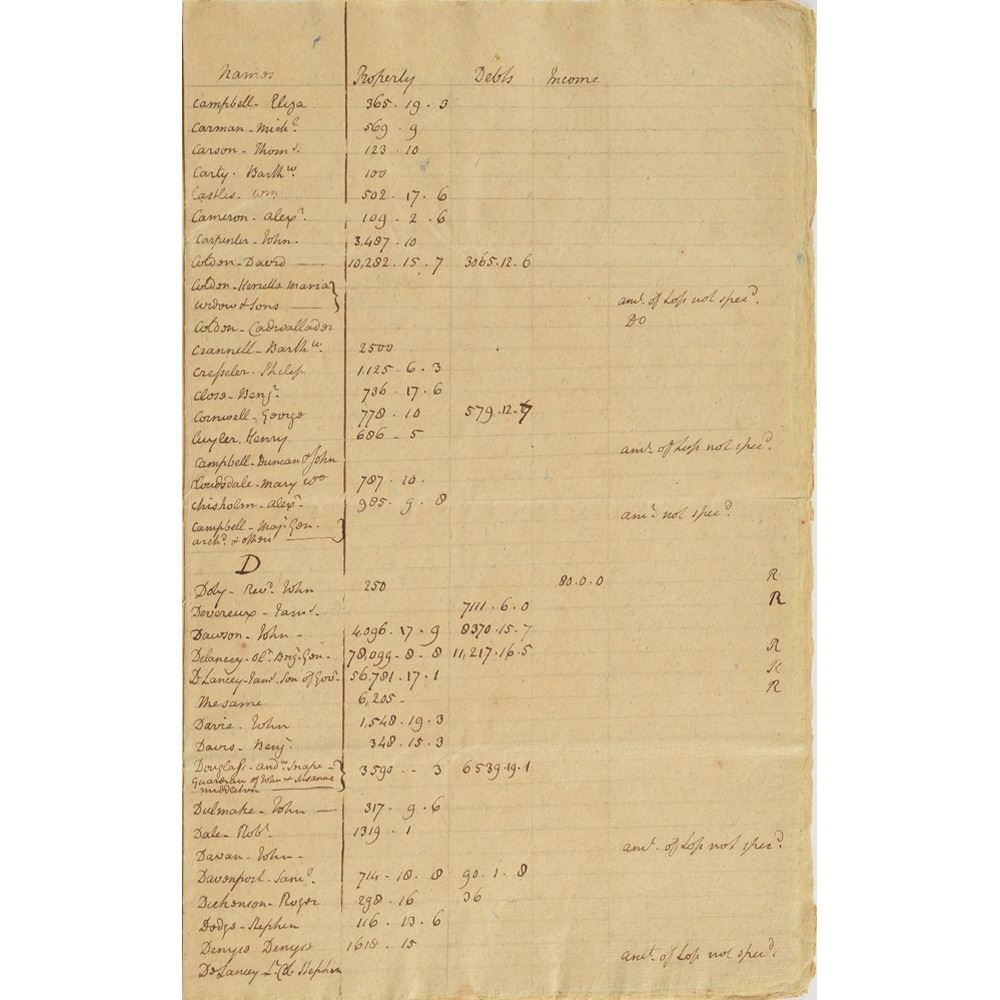 Names Property Debts Income
Campbell - Eliza 365 . 19 . 3
Carman - Mich.l 569 . 9
Carson - Thom.s 123 . 10
Carty - Barth.w 100
Castles - Wm 502 . 17 . 6
Cameron - Alex.r 109 . 2 . 6
Carpenter - John . 3,487 . 10
Colden - David — 10,282 . 15 . 7 3065.12.6
Colden - Henrella Maria }
Widow & Sons — } am.t of Loss not spec.d
Coldon - Cadwallader Do
Crannell - Barth.w 2500
Cressler - Philip 1,125 . 6 . 3
Close - Benj.n 736 . 17 . 6
Cornwell - George 778 . 10 579.12.
Cuyler . Henry 686 - 5
Campbell - Duncan & John am.t of Loss not spec.d
Mary Wo 787 . 10 .
Chisholm - Alex.r 985 - 9 . 8
Campbell - Maj.r Gen. }
Arch.d & others } am.t not spec.d
D
Doty - Rev.d John 250 80.0.0 R
Devereux - Jam.s 7111 . 6.0 R
Dawson - John - 4,096 . 17 . 9 8370.15.7
Delancey - Ol.r Brig. Gen - 78,099 - 8 - 8 11,217.16.5 R
D Lancey - Jam.s Son of Gov.r 56,781 . 17 . 1 R
The same 6,205 - R
Davie - John 1,548 . 19 . 3
Davis - Benj. 348 . 15 . 3
Douglass - And.w Snape - }
Guardian of John & Susanna } 3590 - - 3 6539.19.1
Middleton — }
Dulmake - John — 317 . 9 . 6
Dale - Rob.t 1319 . 1
Davan - John - am.t of Loss not spec.d
Davenport - Sam.l 714 - 18 . 8 90 . 1 . 8
Dickenson - Roger 298 . 16 36
Dodge - Stephen 116 . 13 . 6
Denyco Denyco 1618 . 15
De Lancey L.t Col. Stephen am.t of Loss not spec.d